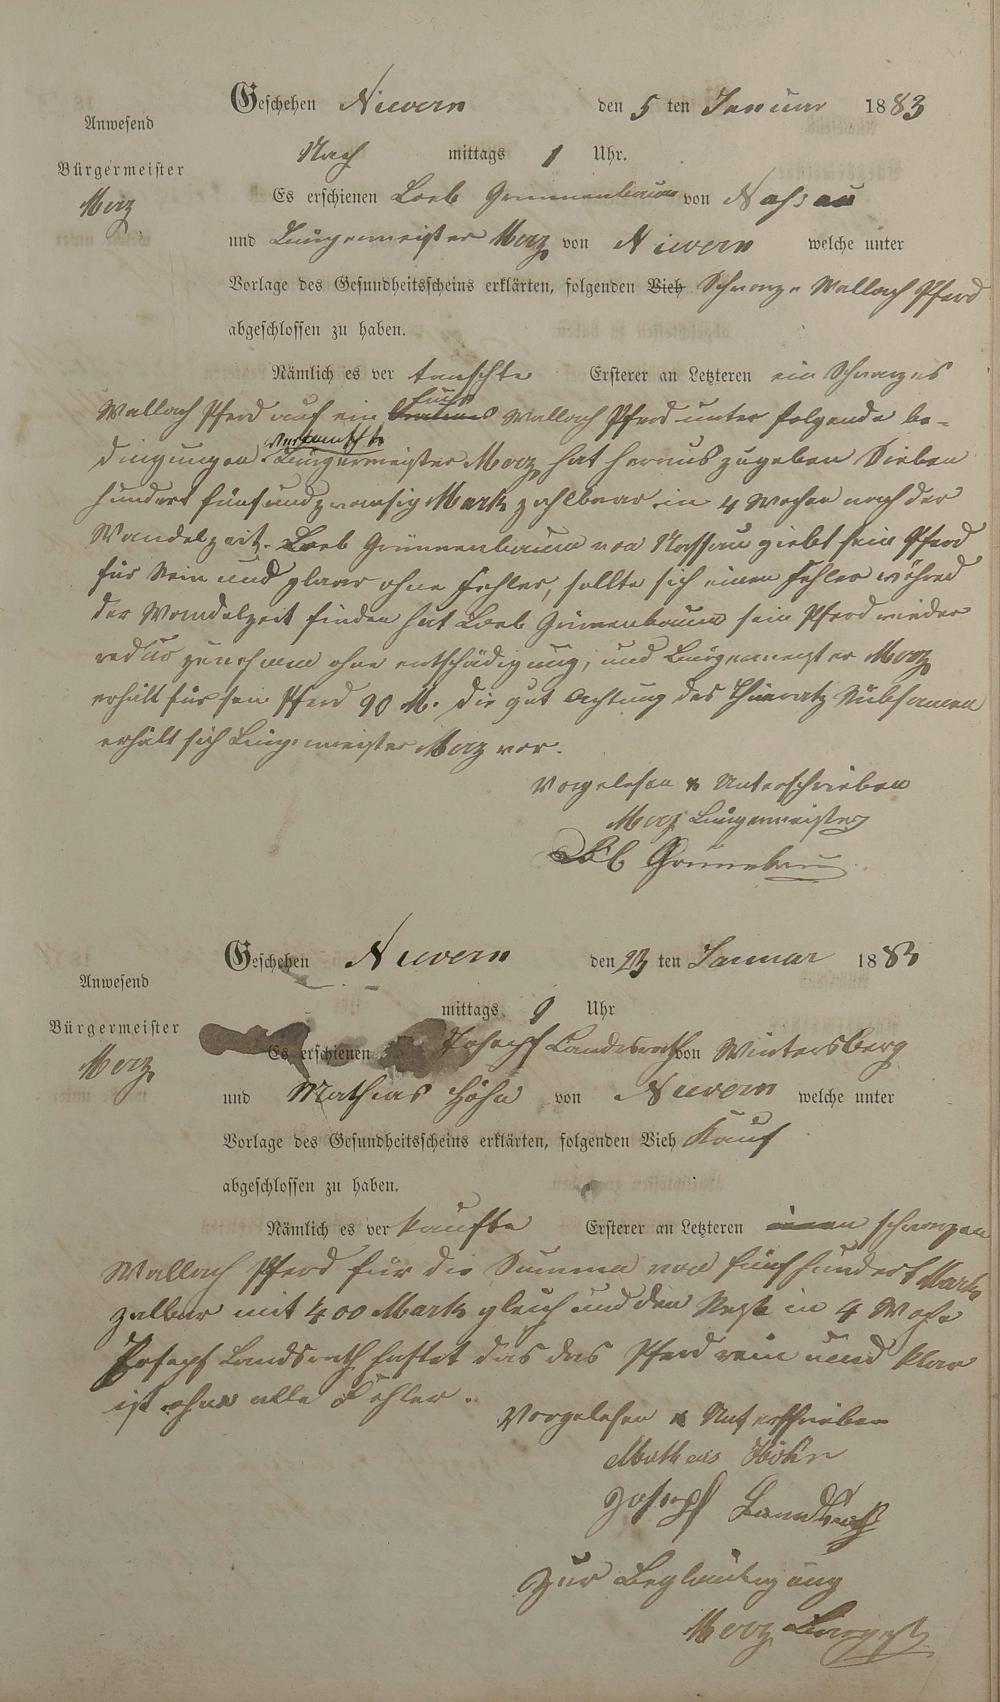 Geschehen Nievern den 5 ten Januar 1883
Anwesend
Nach mittags 1 Uhr.
Bürgermeister
Merz
Es erschienen Loeb Grünnenbaum von Nassau
und Bürgermeister Merz von Nievern welche unter
Vorlage des Gesundheitsscheins erklärten, folgenden Vieh Schwarze Wallach Pferd
abgeschlossen zu haben.
Nämlich es ver tauschte Ersterer an Letzteren ein Schwarzes
Wallach Pferd auf ein Fuchs Wallach Pferd unter folgende be-
dingungen Bürgermeister Merz hat heraus zugeben Sieben
hundert fünfundzwansig Mark zahlbaar in 4 Wochen nach der
Wandelzeit. Loeb Grünnenbaum von Nassau giebt sein Pferd
für Rein und glaar ohne Fehler, sollte sich einen Fehler währed
der Wandelzeit finden hat Loeb Grünnenbaum sein Pferd wieder
zunehmen ohne entschädigung, und Bürgermeister Merz
erhält für sein Pferd 90 M. Die gut Achtung des Thierartz Rübsamen
erhält sich Bürgermeister Merz vor.
Vorgelesen & Unterschrieben
Merz Bürgermeister
Löb Grünebaum
Geschehen Nievern den 23 ten Januar 1883
Anwesend
mittags 9 Uhr
Bürgermeister
Merz
Es erschienen Joseph Landsrath von Wintersberg
und Mathias Höhn von Nievern welche unter
Vorlage des Gesundheitsscheins erklärten, folgenden Vieh Kauf
abgeschlossen zu haben.
Nämlich es ver kaufte Ersterer an Letzteren einen schwarzen
Wallach Pferd für die Summa von fünfhundert Mark
zalbar mit 400 Mark gleich und den Rest in 4 Woche
Joseph Landsrath haftet das das Pferd rein und klar
ist ohne alle Fehler.
Vorgelesen & Unterschrieben
Mathias Höhn
Joseph Landsrath
Zur Beglaubigung
Merz Bürgerst